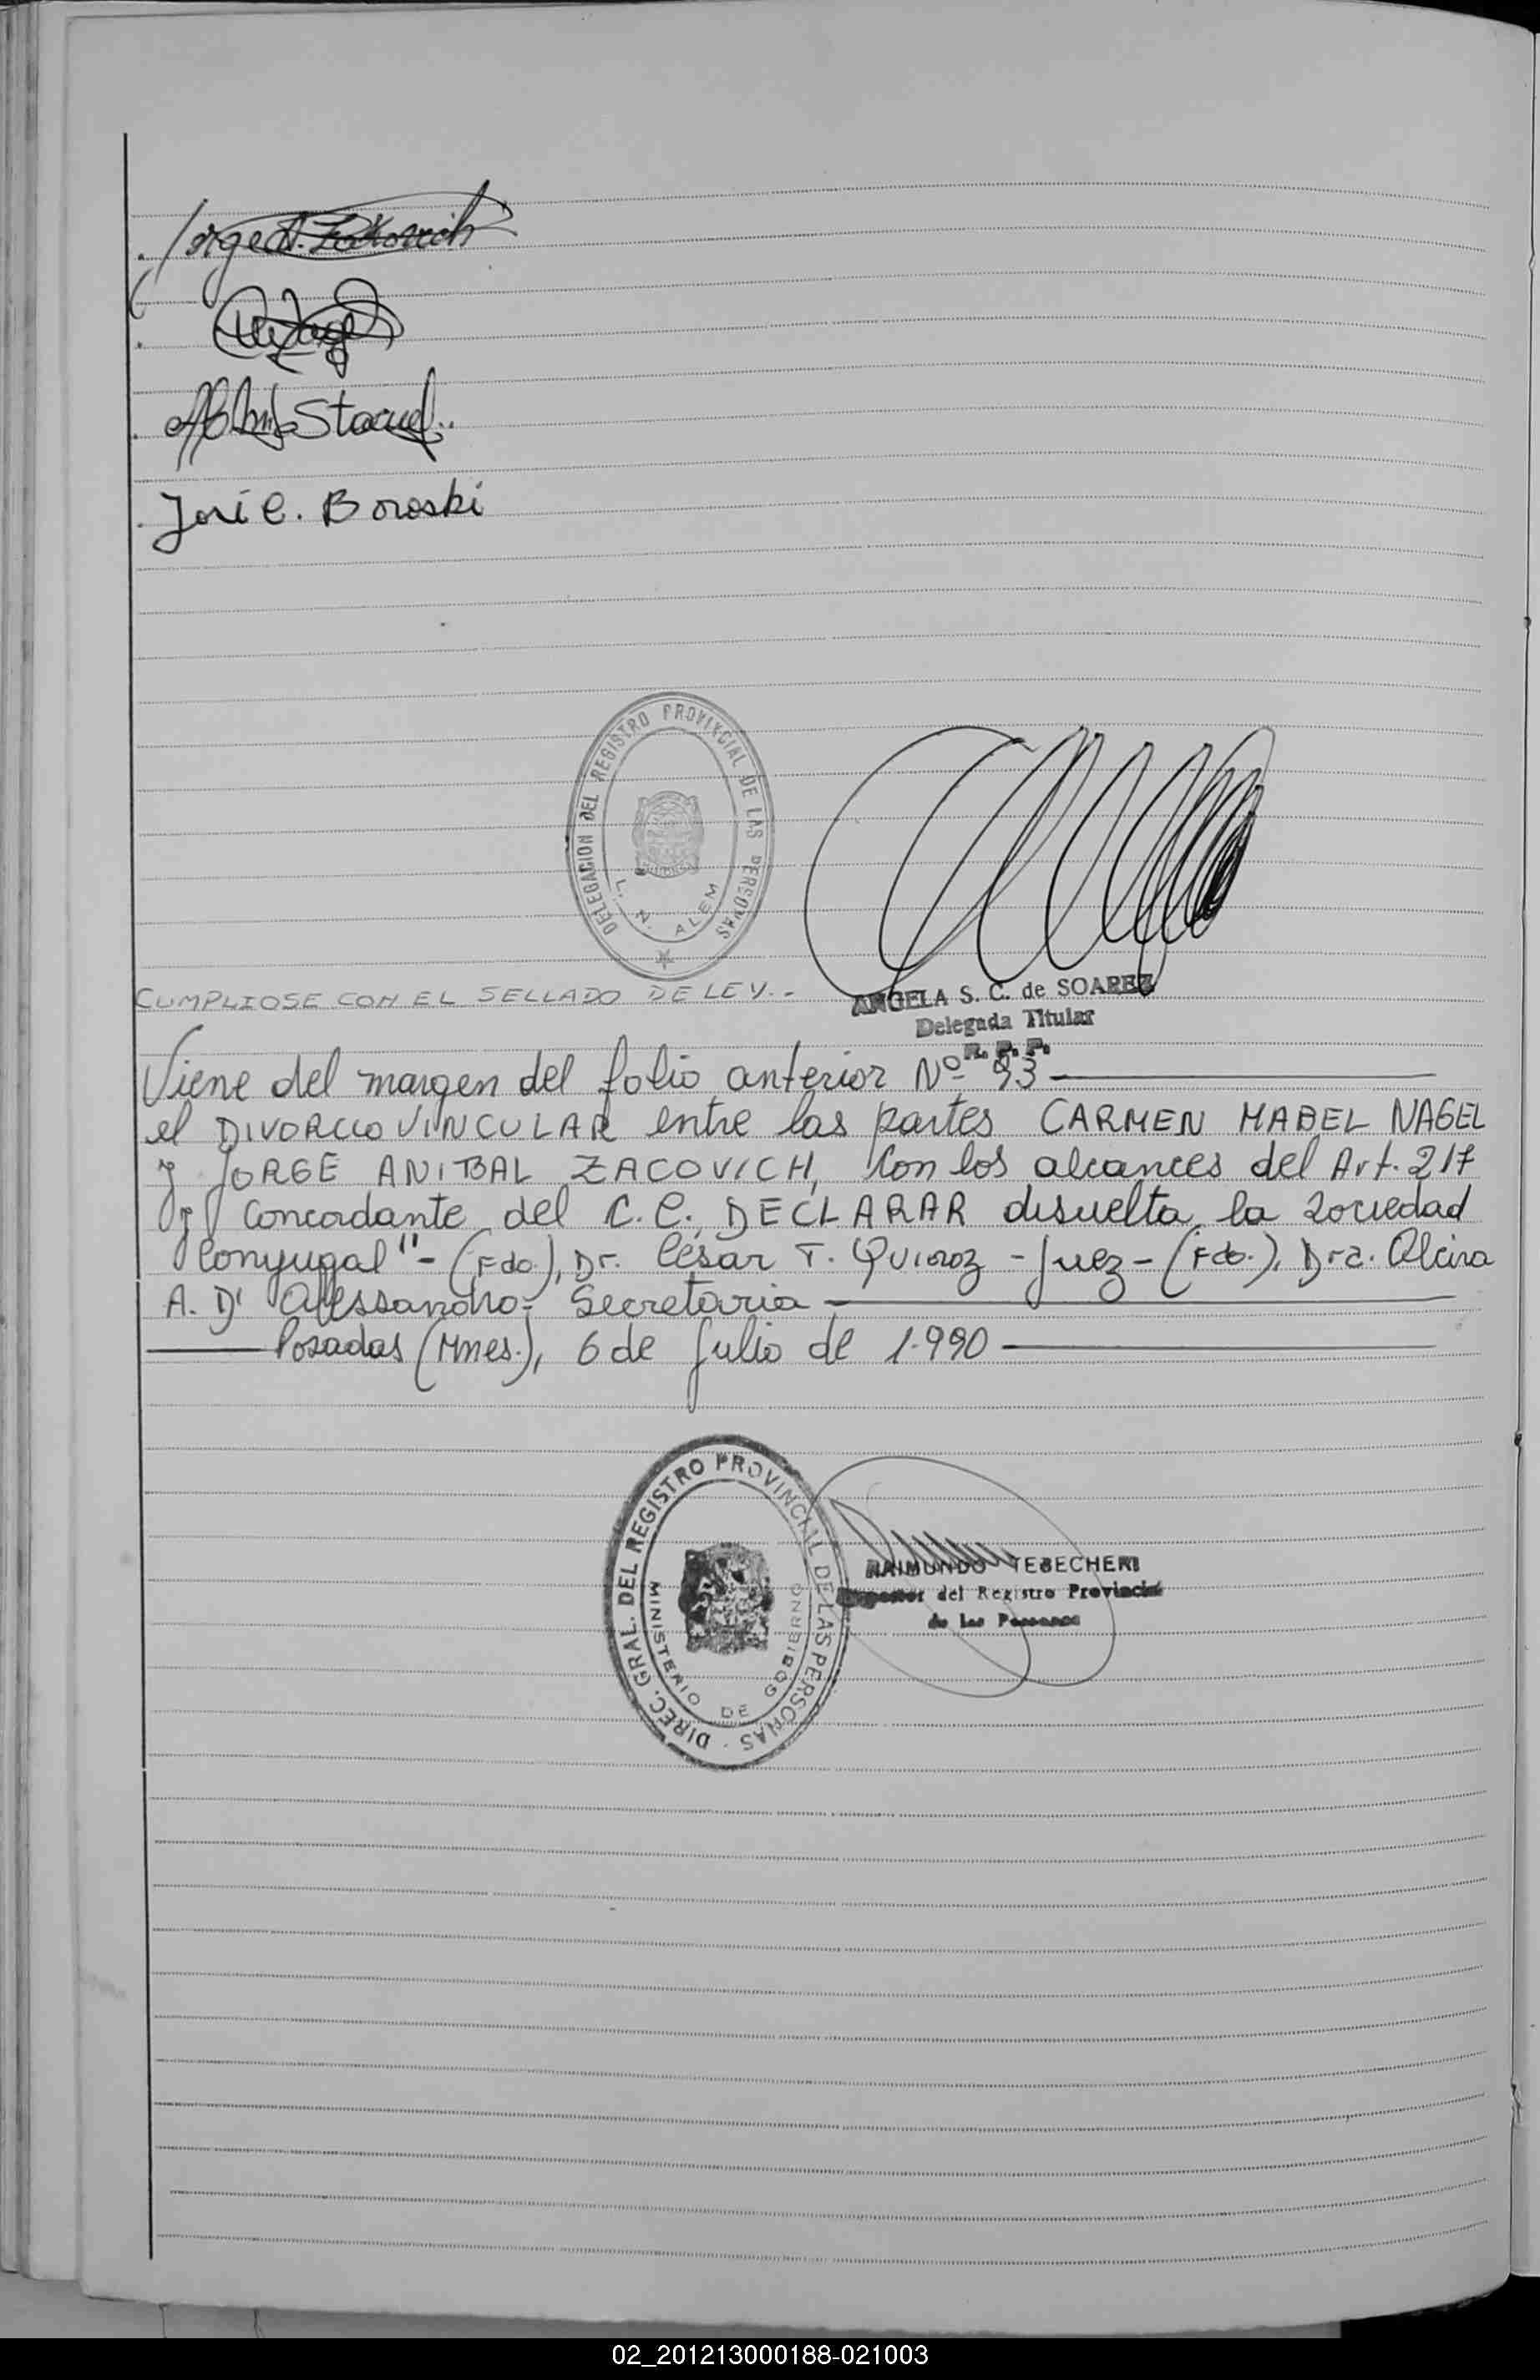 Jorge A. Zakovich
Stacul
José C. Boroski
DELEGACION DEL REGISTRO PROVINCIAL DE LAS PERSONAS
L. N. ALEM
CUMPLIOSE CON EL SELLADO DE LEY.-
ANGELA S. C. de SOAREZ
Delegada Titular
R. P. P.
Viene del margen del folio anterior Nº 93
el DIVORCIO VINCULAR entre las partes CARMEN MABEL NAGEL
y JORGE ANIBAL ZACOVICH, con los alcances del Art. 217
y concordante del C.C. DECLARAR disuelta la Sociedad
Conyugal"- (Fdo.), Dr. César T. Quiroz - Juez - (Fdo.), Dra. Alcira
A. D' Alessandro - Secretaria
Posadas (Mnes.), 6 de Julio de 1.990
DIREC. GRAL. DEL REGISTRO PROVINCIAL DE LAS PERSONAS
MINISTERIO DE GOBIERNO
RAIMUNDO TEBECHERI
Inspector del Registro Provincial
de las Personas
02_201213000188-021003